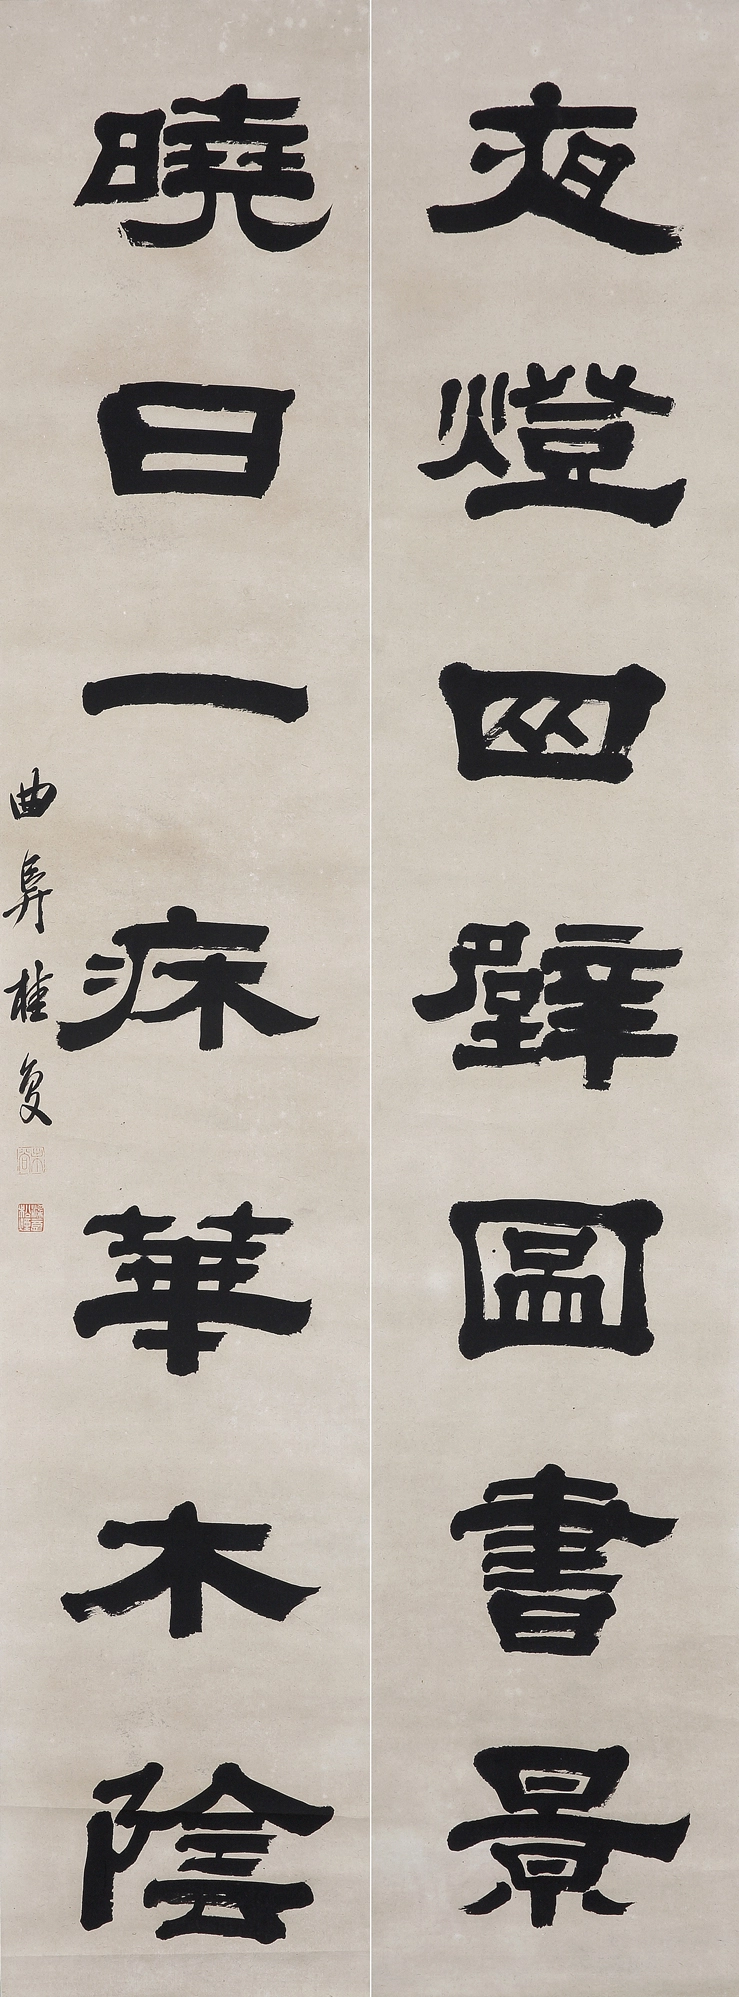 夜燈四壁圖書景
曉日一牀華木陰
曲阜桂馥